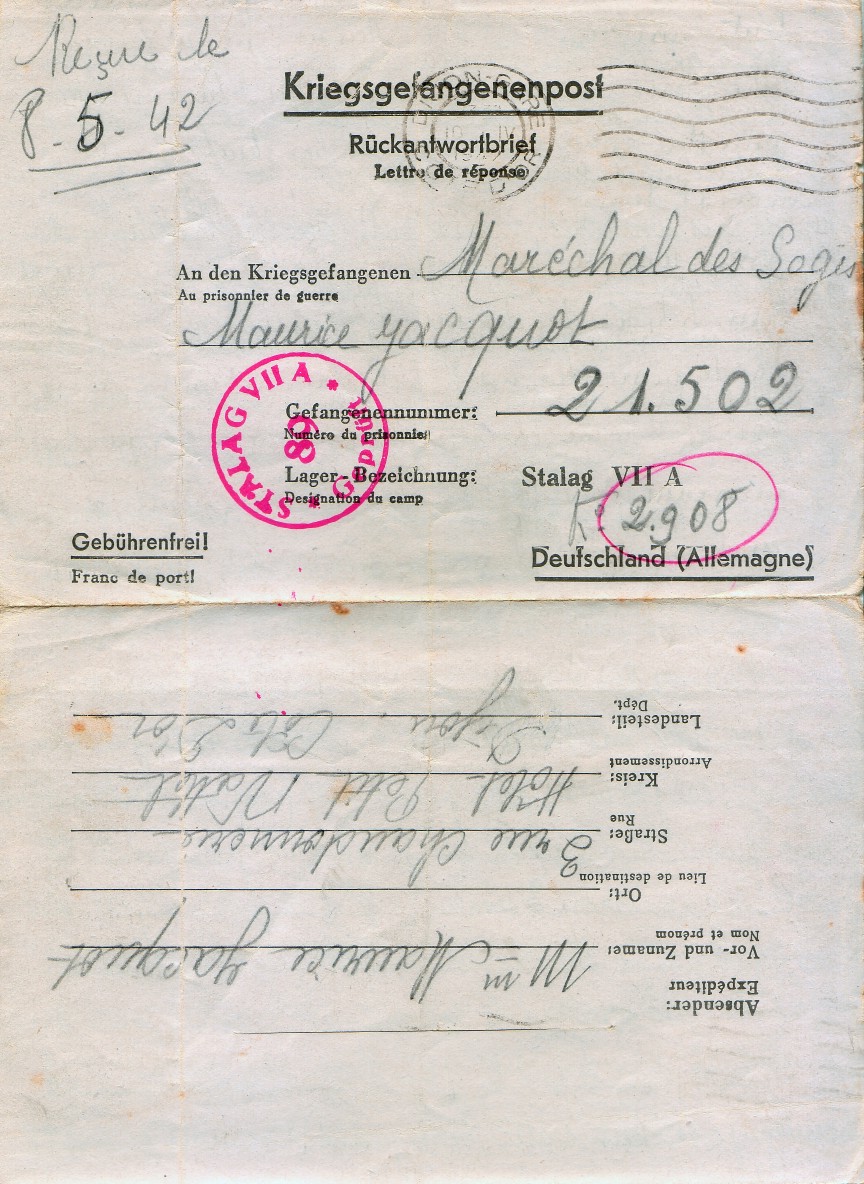 Reçue le
8.5.42
Kriegsgefangenenpost
DIJON-GARE
Rückantwortbrief
Lettre de réponse
An den Kriegsgefangenen Maréchal des Logis
Au prisonnier de guerre
Maurice Jacquot
STALAG VII A * Geprüft *
68
Gefangenennummer: 21.502
Numéro du prisonnier
Lager-Bezeichnung: Stalag VII A
Désignation du camp
2.908
Gebührenfrei!
Franc de port!
Deutschland (Allemagne)
Absender:
Expéditeur
Vor- und Zuname: Mme Maurice Jacquot
Nom et prénom
Ort:
Lieu de destination
Straße: 3 rue Chaudronnerie
Rue
Kreis: Hôtel Petit
Arrondissement
Landesteil: Dijon. Côte D'or
Dépt.